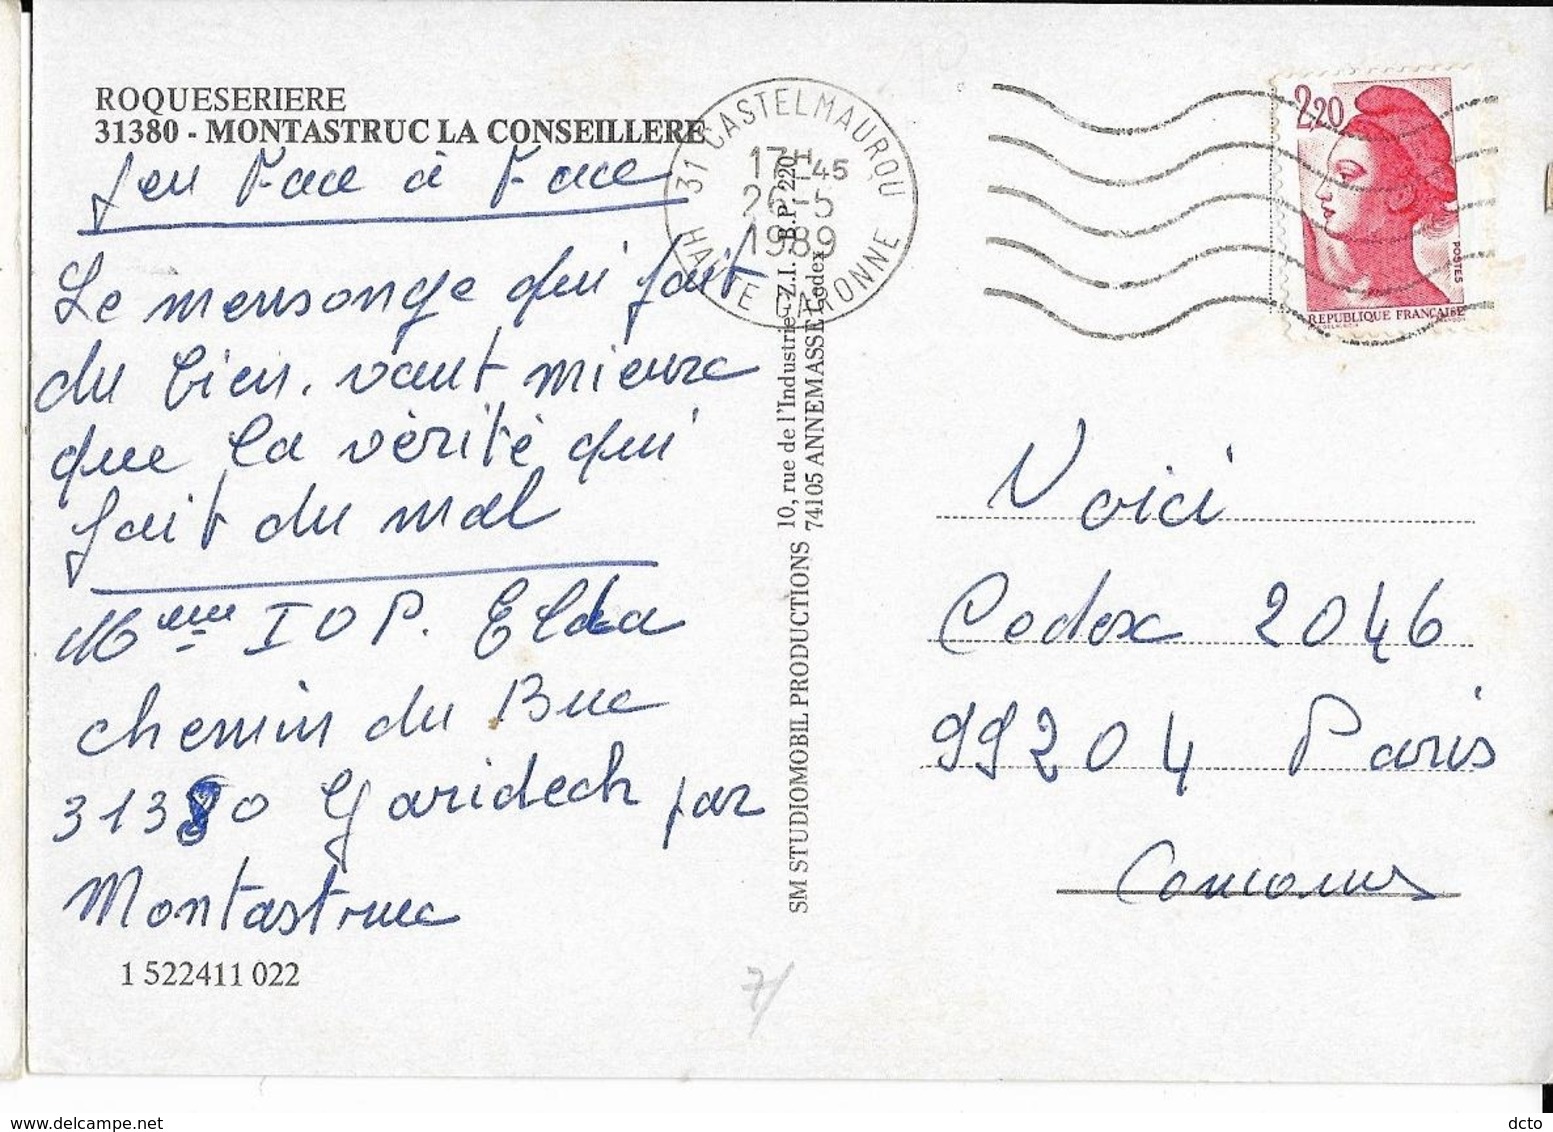 ROQUESERIERE
31380 - MONTASTRUC LA CONSEILLERE
Jeu Face à Face
Le mensonge qui fait
du bien, vaut mieux
que la vérité qui
fait du mal
Mme IOP. Elda
chemin du Buc
31380 Garidech par
Montastruc
1 522411 022
31 CASTELMAUROU
17H45
26-5
1989
HAUTE GARONNE
SM STUDIOMOBIL PRODUCTIONS 10, rue de l'Industrie - Z.I. - B.P. 220
74105 ANNEMASSE Cedex
2,20
POSTES
REPUBLIQUE FRANÇAISE
Voici
Cedex 2046
99204 Paris
Concours
7/
delcampe.net
dcto